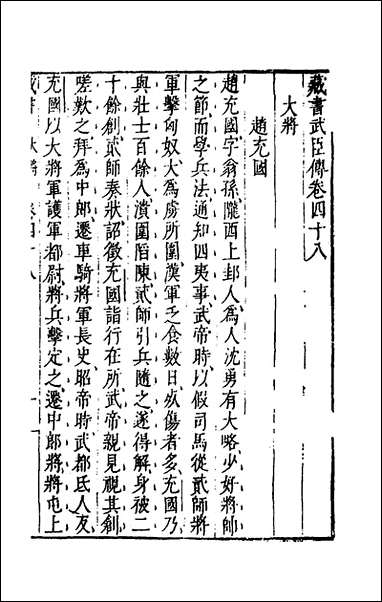 藏書武臣傳卷四十八
大將
趙充國
趙充國字翁孫隴西上邽人為人沈勇有大略少好將帥
之節而學兵法通知四夷事武帝時以假司馬從貳師將
軍擊匈奴大為虜所圍漢軍乏食數日死傷者多充國乃
與壯士百餘人潰圍陷陳貳師引兵隨之遂得解身被二
十餘創貳師奏狀詔徵充國詣行在所武帝親見視其創
嗟歎之拜為中郎遷車騎將軍長史昭帝時武都氐人反
充國以大將軍護軍都尉將兵擊定之遷中郎將將屯上
卷四十八